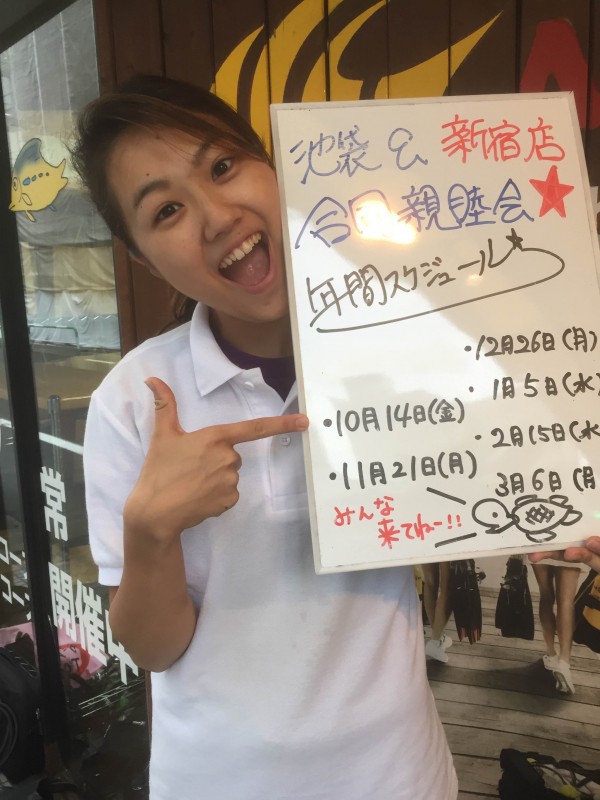 池袋&新宿店
合同親睦会★
年間スケジュール
・10月14日(金)
・11月21日(月)
・12月26日(月)
・1月5日(水)
・2月15日(水
3月6日(月
みんな
来てねー!!
常
開催中